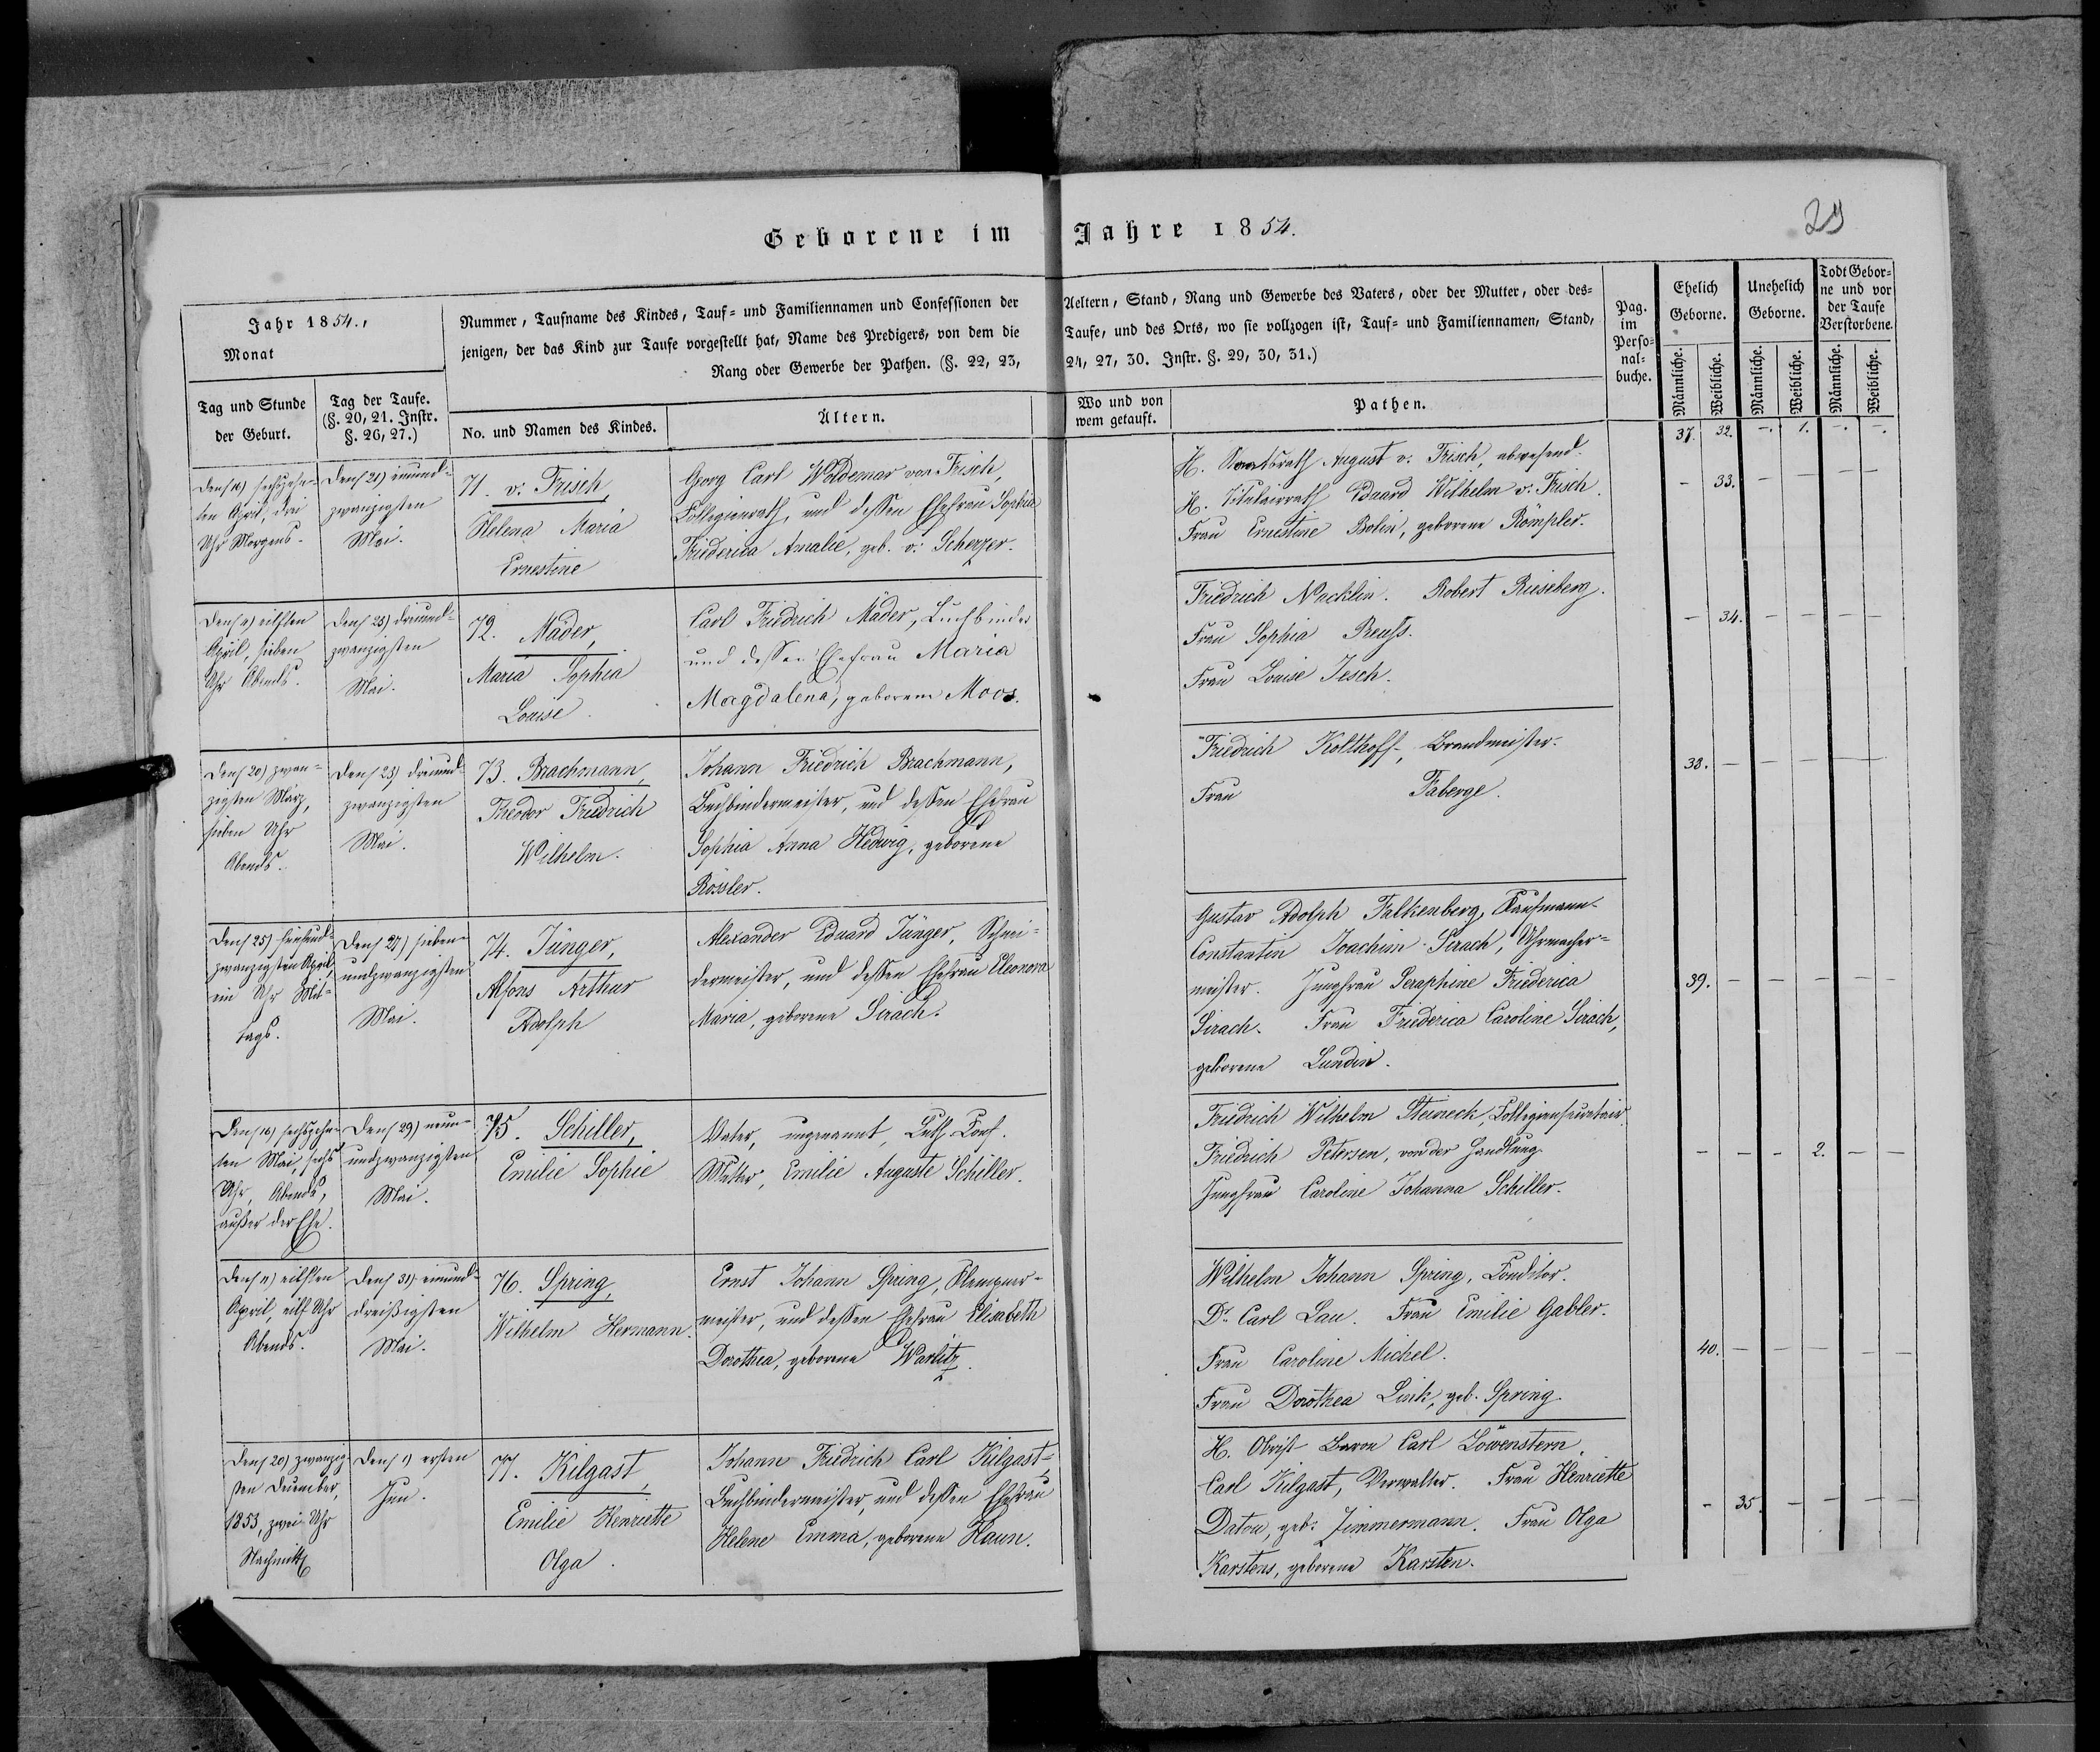 Geborene im Jahre 1854.
29
Jahr 1854.,
Monat
Nummer, Taufname des Kindes, Tauf= und Familiennamen und Confessionen der Aeltern, Stand, Rang und Gewerbe des Vaters, oder der Mutter, oder des=
jenigen, der das Kind zur Taufe vorgestellt hat, Name des Predigers, von dem die Taufe, und des Orts, wo sie vollzogen ist, Tauf= und Familiennamen, Stand,
Rang oder Gewerbe der Pathen. (§. 22, 23, 24, 27, 30. Instr. §. 29, 30, 31.)
Pag.
im
Perso=
nal=
buche.
Ehelich
Geborne.
Unehelich
Geborne.
Todt Gebor=
ne und vor
der Taufe
Verstorbene.
Männliche.
Weibliche.
Männliche.
Weibliche.
Männliche.
Weibliche.
Tag und Stunde
der Geburt.
Tag der Taufe.
(§. 20, 21. Instr.
§. 26, 27.)
No. und Namen des Kindes.
Ältern.
Wo und von
wem getauft.
Pathen.
37. 32. –. 1. –. –.
Den sechszehn=
ten April, drei
Uhr Morgens.
Den 21) einund=
zwanzigsten
Mai.
71. v: Frisch,
Helena Maria
Ernestine
Georg Carl Woldemar von Frisch,
Collegienrath, und dessen Ehefrau Sophia
Friederica Amalie, geb. v: Scherzer.
H. Staatsrath August v: Frisch, abwesend.
H. Titulairrath Eduard Wilhelm v: Frisch.
Frau Ernestine Bolin, geborene Römpler.
– 33. – – – –
Den eilften
April, sieben
Uhr Abends.
Den 23) dreiund=
zwanzigsten
Mai.
72. Mäder,
Maria Sophia
Louise.
Carl Friedrich Mäder, Buchbinder
und dessen Ehefrau Maria
Magdalena, geborene Moos.
Friedrich Nacklin. Robert Rieseberg.
Frau Sophia Preuss.
Frau Louise Jesch.
– 34. – – – –
Den 20) zwan=
zigsten März,
sieben Uhr
Abends.
Den 23) dreiund=
zwanzigsten
Mai.
73. Brachmann,
Theodor Friedrich
Wilhelm.
Johann Friedrich Brachmann,
Buchbindermeister, und dessen Ehefrau
Sophia Anna Hedwig, geborene
Rössler.
Friedrich Kolthoff, Brandmeister.
Frau Faberge.
38. – – – – –
Den 25) fünfund=
zwanzigsten April,
ein Uhr Mit=
tags.
Den 27) sieben=
undzwanzigsten
Mai.
74. Jünger,
Alfons Arthur
Adolph
Alexander Eduard Jünger, Schnei=
dermeister, und dessen Ehefrau Eleonora
Maria, geborene Sirach.
Gustav Adolph Falkenberg, Kaufmann.
Constantin Joachim Sirach, Uhrmacher=
meister. Jungfrau Seraphine Friederica
Sirach. Frau Friederica Caroline Sirach,
geborene Lundin.
39. – – – – –
Den 16) sechszehn=
ten Mai, sechs
Uhr, Abends,
außer der Ehe.
Den 29) neun=
undzwanzigsten
Mai.
75. Schiller,
Emilie Sophie
Vater, ungenannt, Luth. Conf.
Mutter, Emilie Auguste Schiller.
Friedrich Wilhelm Steineck, Collegiensecretair.
Friedrich Petersen, von der Handlung.
Jungfrau Caroline Johanna Schiller.
– – – 2. – –
Den 11) eilften
April, eilf Uhr
Abends.
Den 31) einund=
dreißigsten
Mai.
76. Spring,
Wilhelm Hermann.
Ernst Johann Spring, Klempner=
meister, und dessen Ehefrau Elisabeth
Dorothea, geborene Warlitz.
Wilhelm Johann Spring, Conditor.
Dr. Carl Lau. Frau Emilie Gabler.
Frau Caroline Michel.
Frau Dorothea Link, geb. Spring.
40. – – – – –
Den 20) zwanzig=
sten December,
1853, zwei Uhr
Nachmitt.
Den 1) ersten
Jun.
77. Kilgast,
Emilie Henriette
Olga.
Johann Friedrich Carl Kilgast,
Buchbindermeister, und dessen Ehefrau
Helene Emma, geborene Haun.
H. Obrist Baron Carl Löwenstern.
Carl Kilgast, Verwalter. Frau Henriette
Daton, geb. Zimmermann. Frau Olga
Karstens, geborene Karsten.
– 35. – – – –